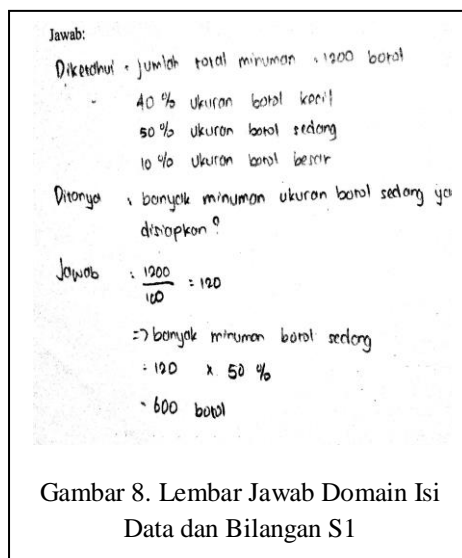 Jawab:
Diketahui : jumlah total minuman : 1200 botol
- 40 % ukuran botol kecil
50 % ukuran botol sedang
10 % ukuran botol besar
Ditanya : banyak minuman ukuran botol sedang ya
disiapkan ?
Jawab : 1200 / 100 = 120
=> banyak minuman botol sedang
= 120 x 50 %
= 600 botol
Gambar 8. Lembar Jawab Domain Isi
Data dan Bilangan S1